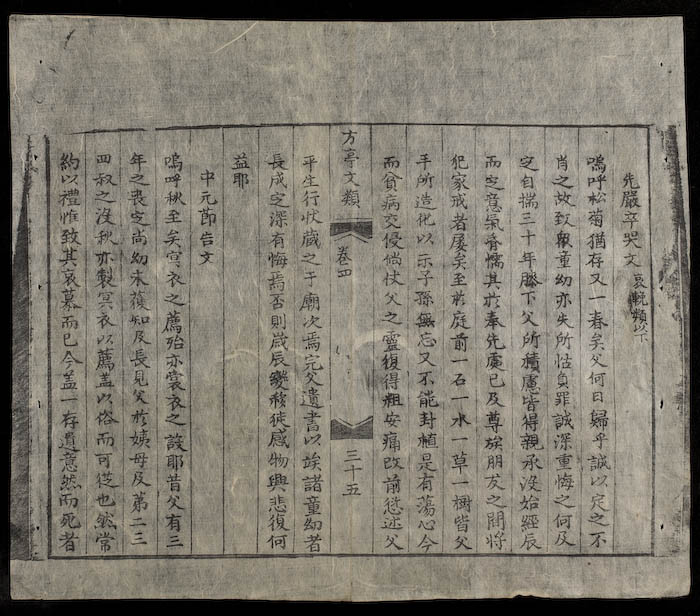 先嚴卒哭文 哀輓類以下
嗚呼松菊猶存又一春矣父何日歸乎誠以定之不
肖之故致衆童幼亦失所怙負罪誠深重悔之何及
定自揣三十年膝下父所積慮皆得親承沒始經辰
而定意氣脊懦其於奉先處已及尊族朋友之間將
犯家戒者屢矣至於庭前一石一水一草一樹皆父
手所造化以示子孫無忘又不能封植是有蕩心今
而貧病交侵倘仗父之靈復得粗安痛改前愆述父
方亭文類 卷四 三十五
平生行狀藏之于廟次焉完父遺書以竢諸童幼者
長成定深有悔焉否則歲辰變移徒感物興悲復何
益耶
中元節告文
嗚呼秋至矣冥衣之薦殆亦裳衣之設耶昔父有三
年之喪定尚幼未獲知及長見父於姨母及第二三
四叔之沒秋亦製冥衣以薦蓋以俗而可從也然常
約以禮惟致其哀慕而已今盖一存遺意然而死者